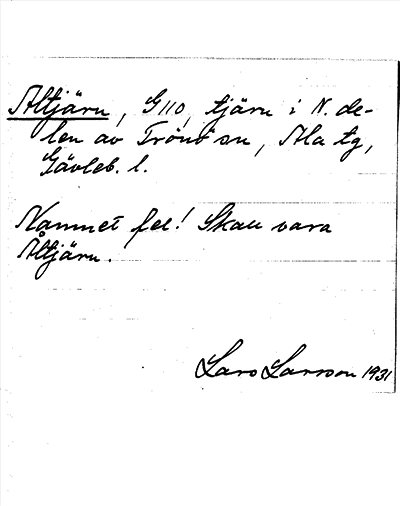 Altjärn, G110, tjärn i N. de-
len av Trönö sn, Ala tg,
Gävleb. l.
Namnet fel! Skall vara
Åltjärn.
Lars Larsson 1931